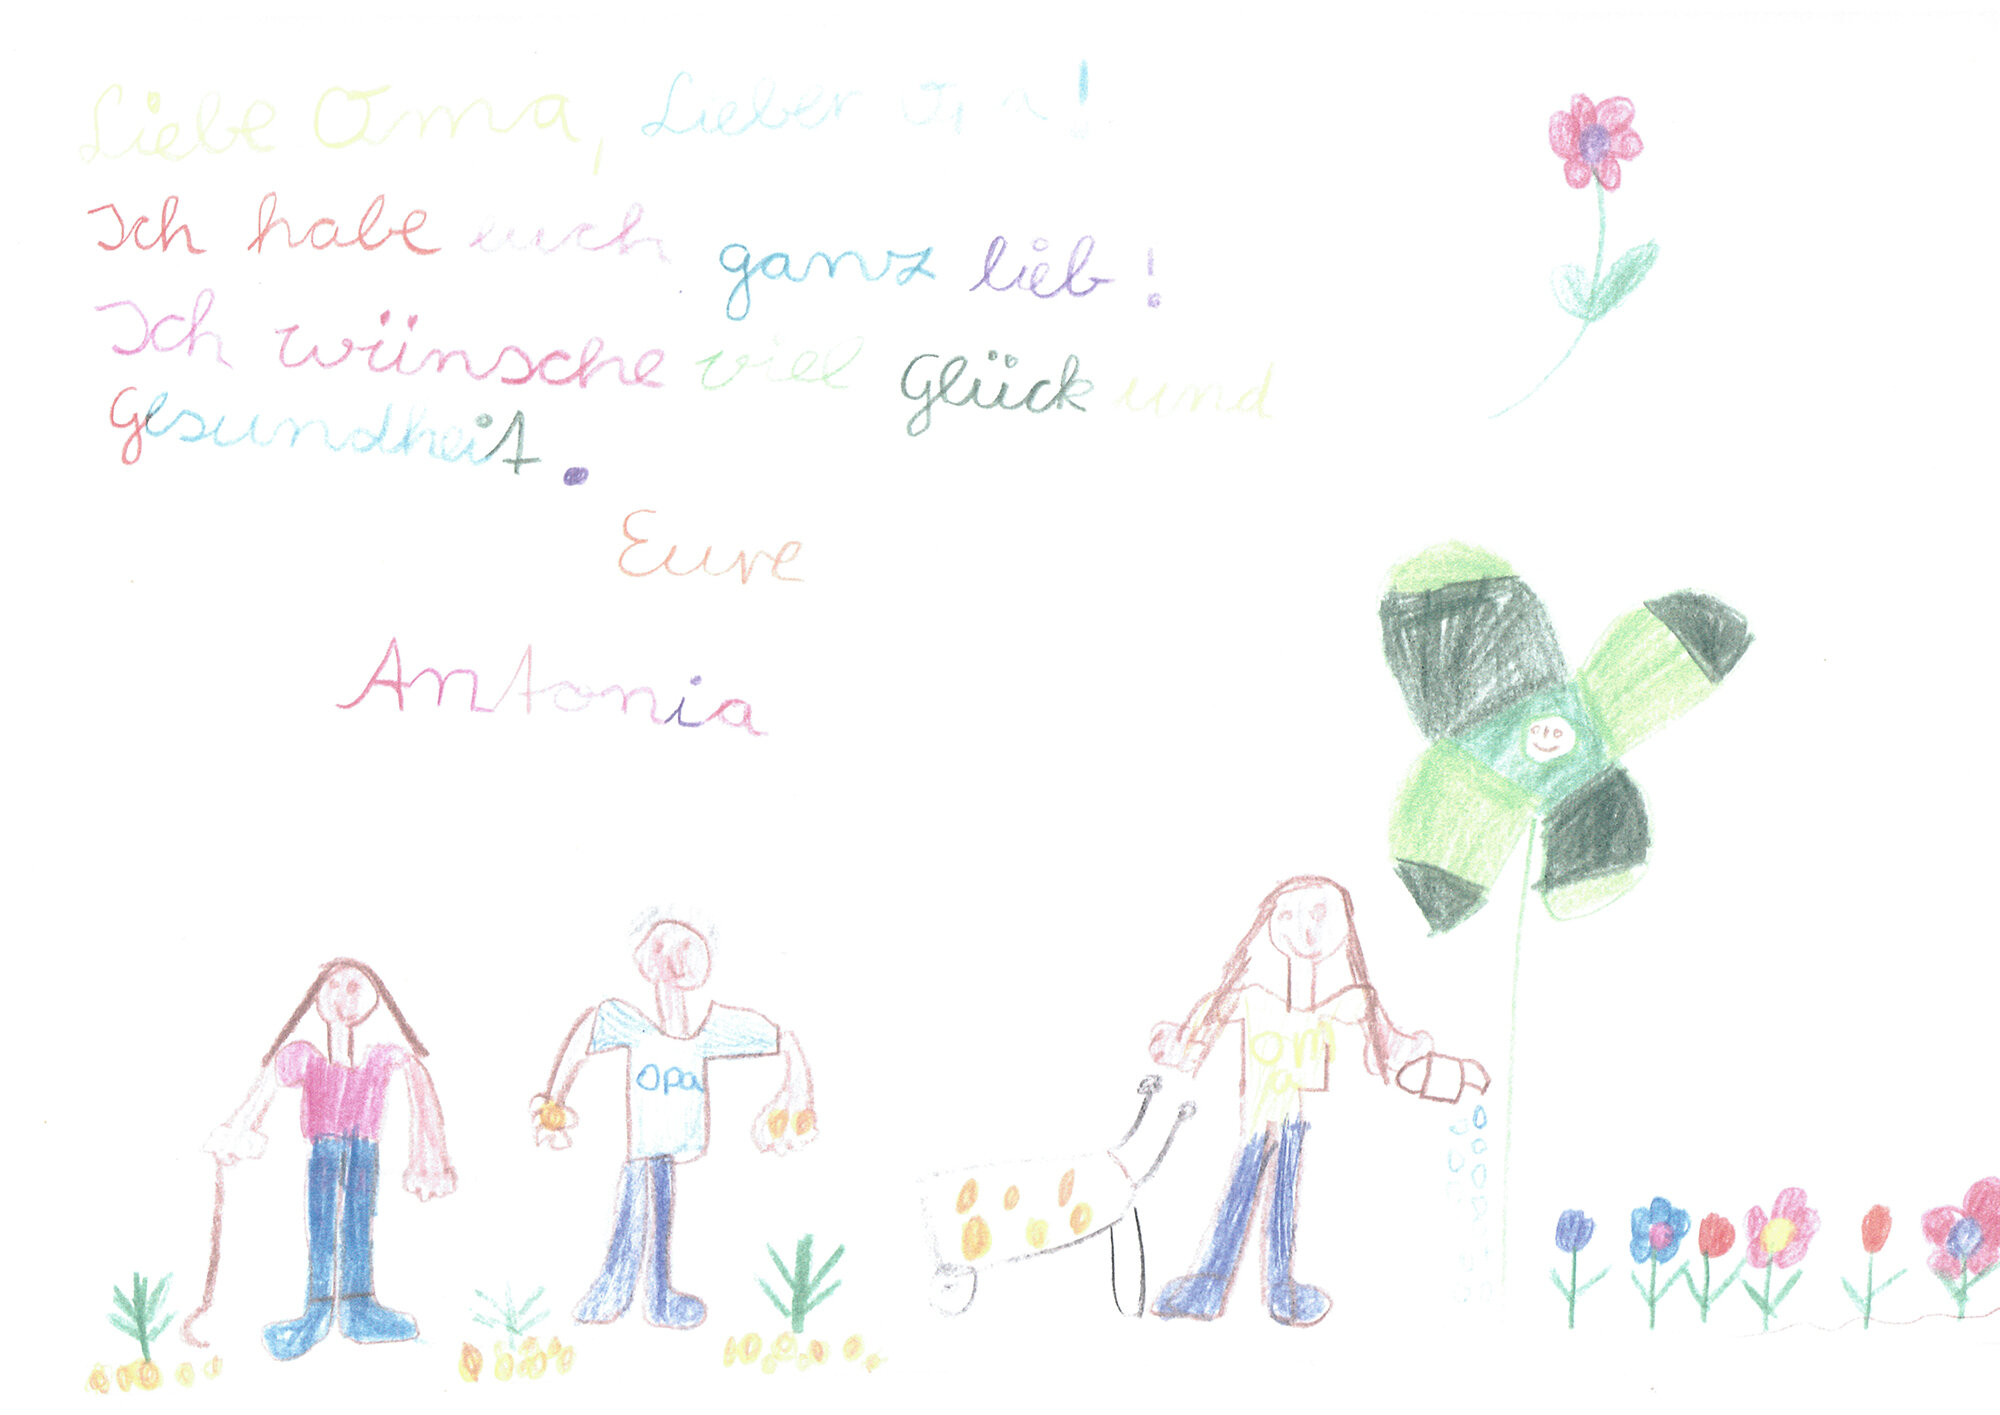 Liebe Oma, Lieber Opa!
Ich habe euch ganz lieb!
Ich wünsche viel Glück und
Gesundheit.
Eure
Antonia
opa
om
a